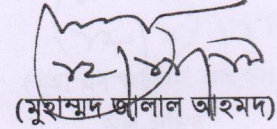 (মুহাম্মদ জালাল আহমদ)